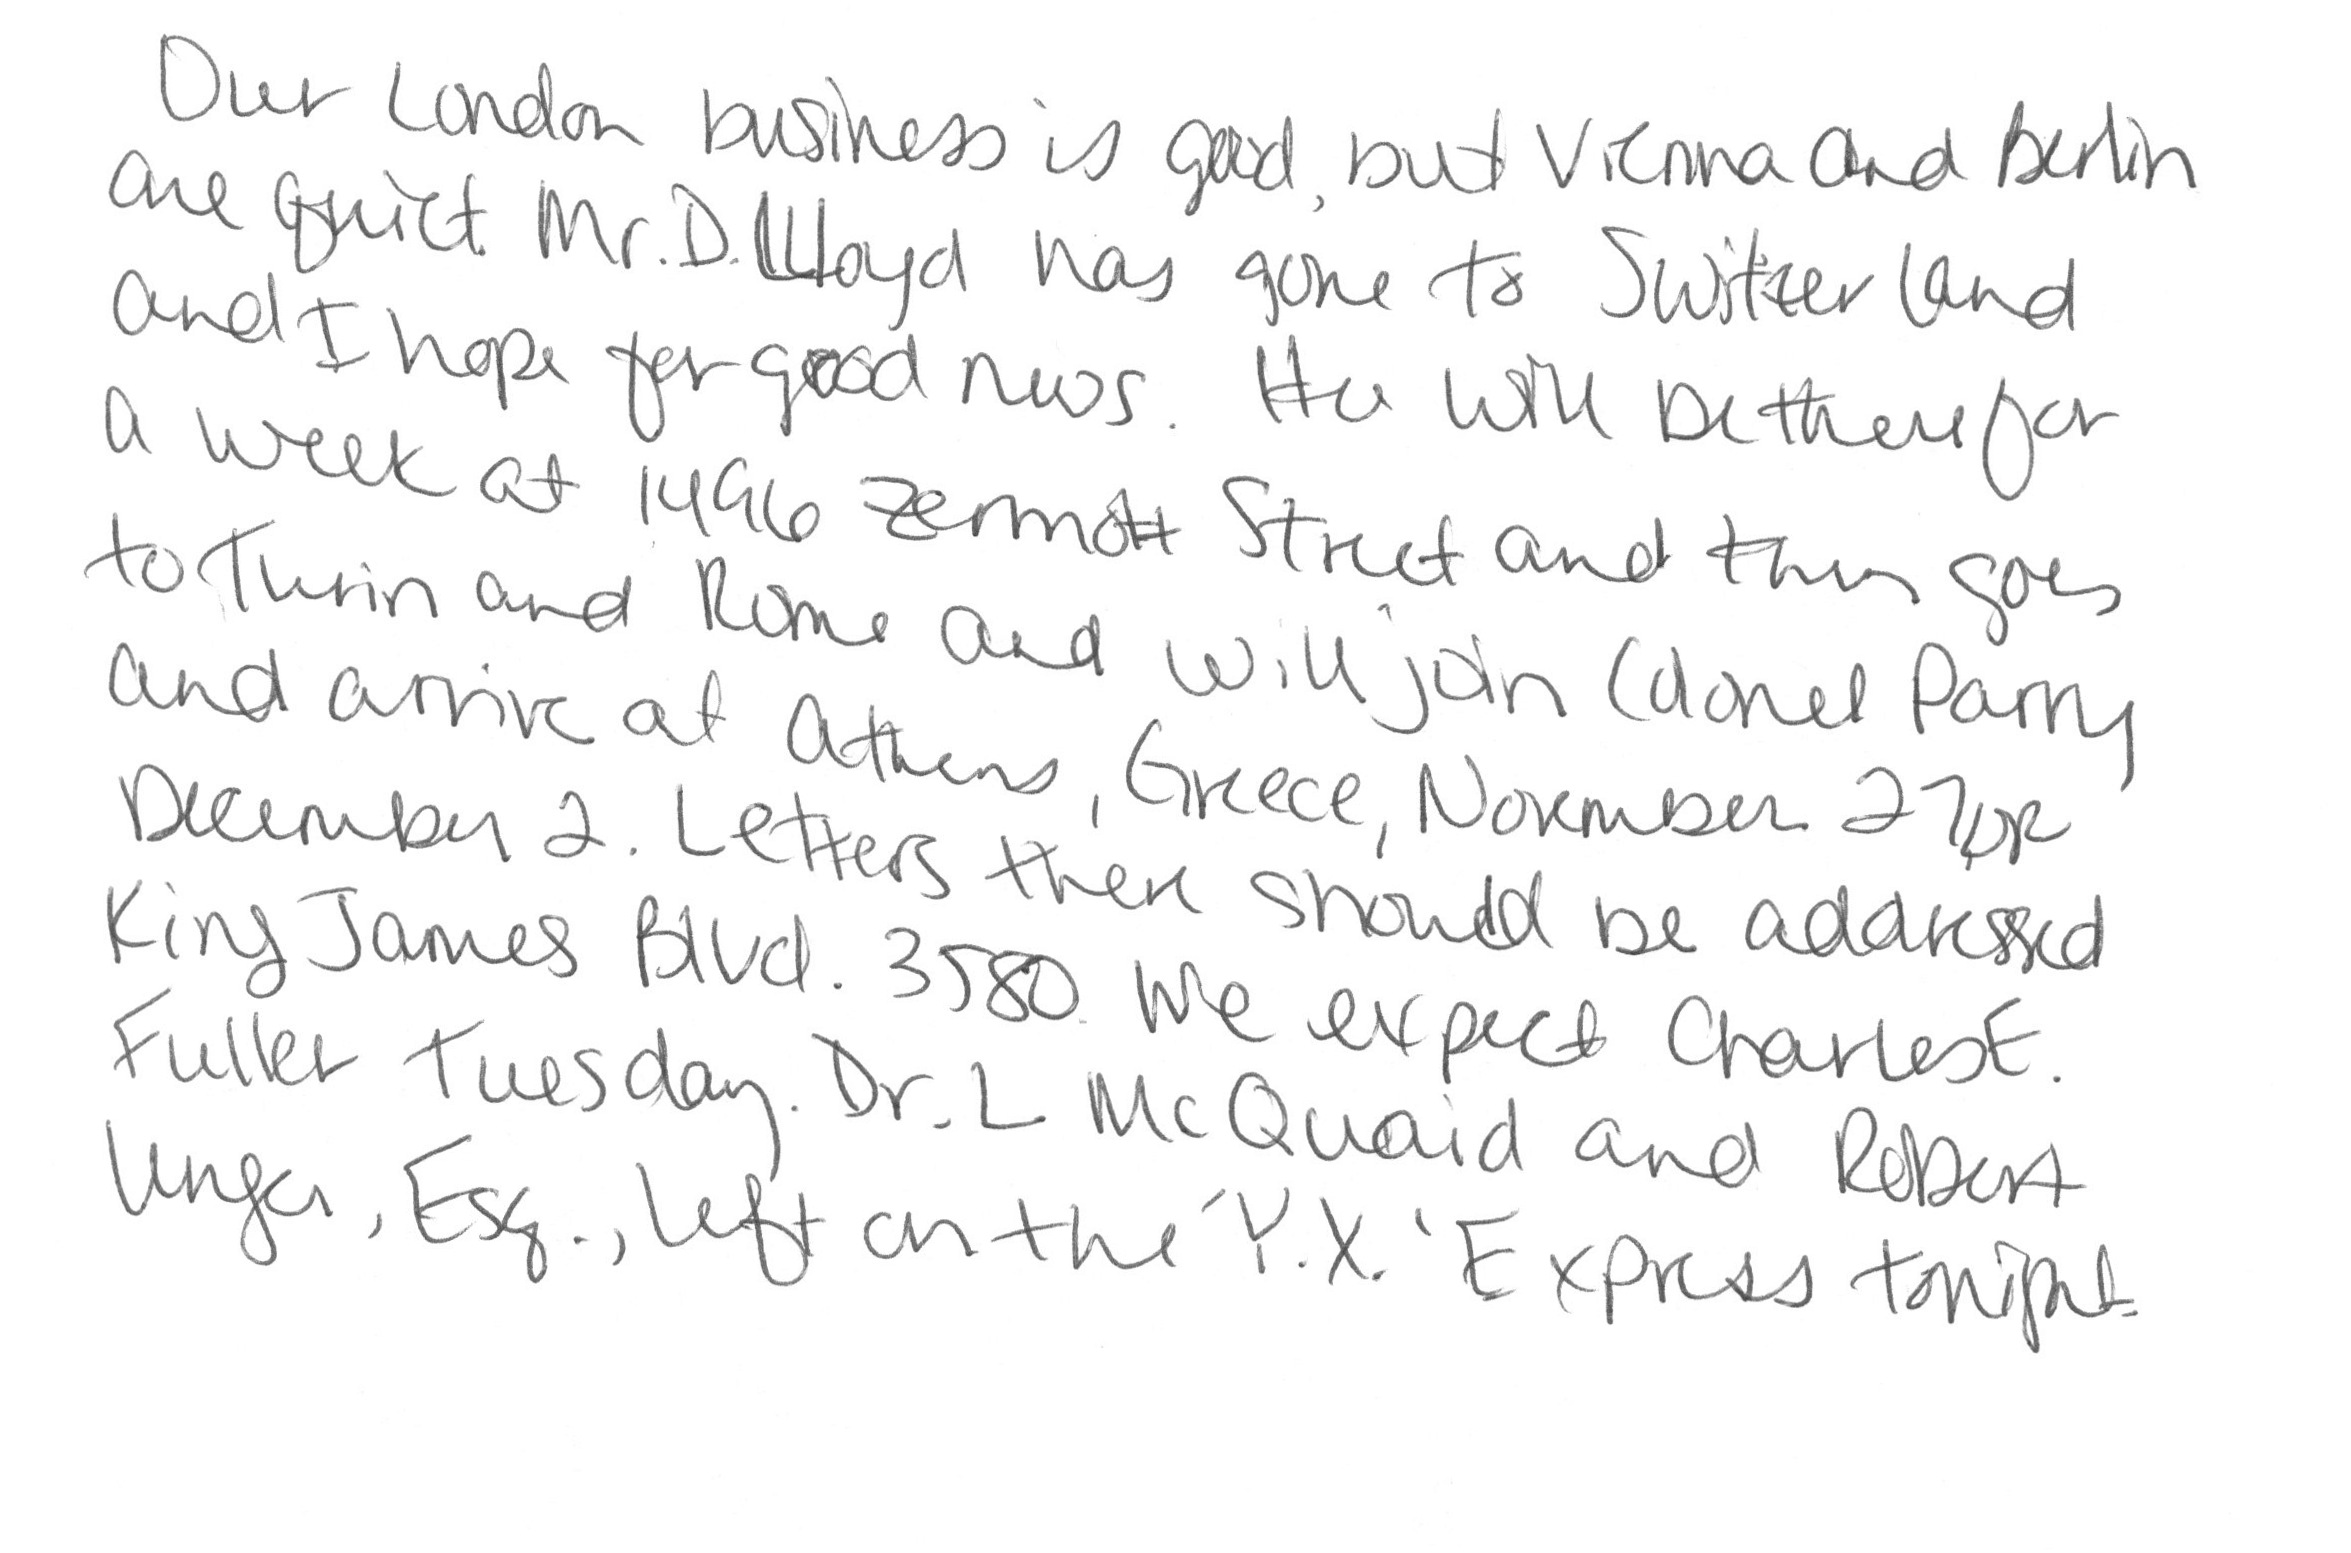 Our London business is good, but Vienna and Berlin
are quiet. Mr. D. Lloyd has gone to Switzerland
and I hope for good news. He will be there for
a week at 1496 Zermott Street and then goes
to Turin and Rome and will join Colonel Parry
and arrive at Athens, Greece, November 27 or
December 2. Letters there should be addressed
King James Blvd. 3580. We expect Charles E.
Fuller Tuesday. Dr. L McQuaid and Robert
Unger, Esq., left on the 'Y.X.' Express tonight.